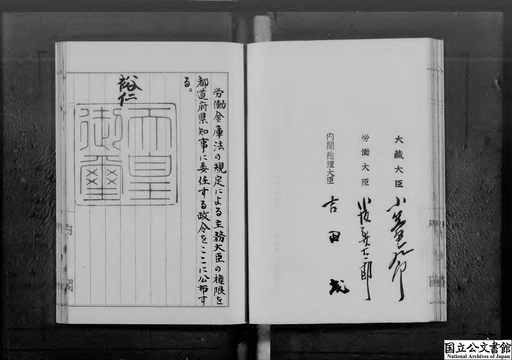 大蔵大臣 小笠原三九郎
労働大臣 小坂善太郎
内閣総理大臣 吉田茂
労働金庫法の規定による主務大臣の権限を
都道府県知事に委任する政令をここに公布す
る。
裕仁
天皇
御璽
国立公文書館
National Archives of Japan